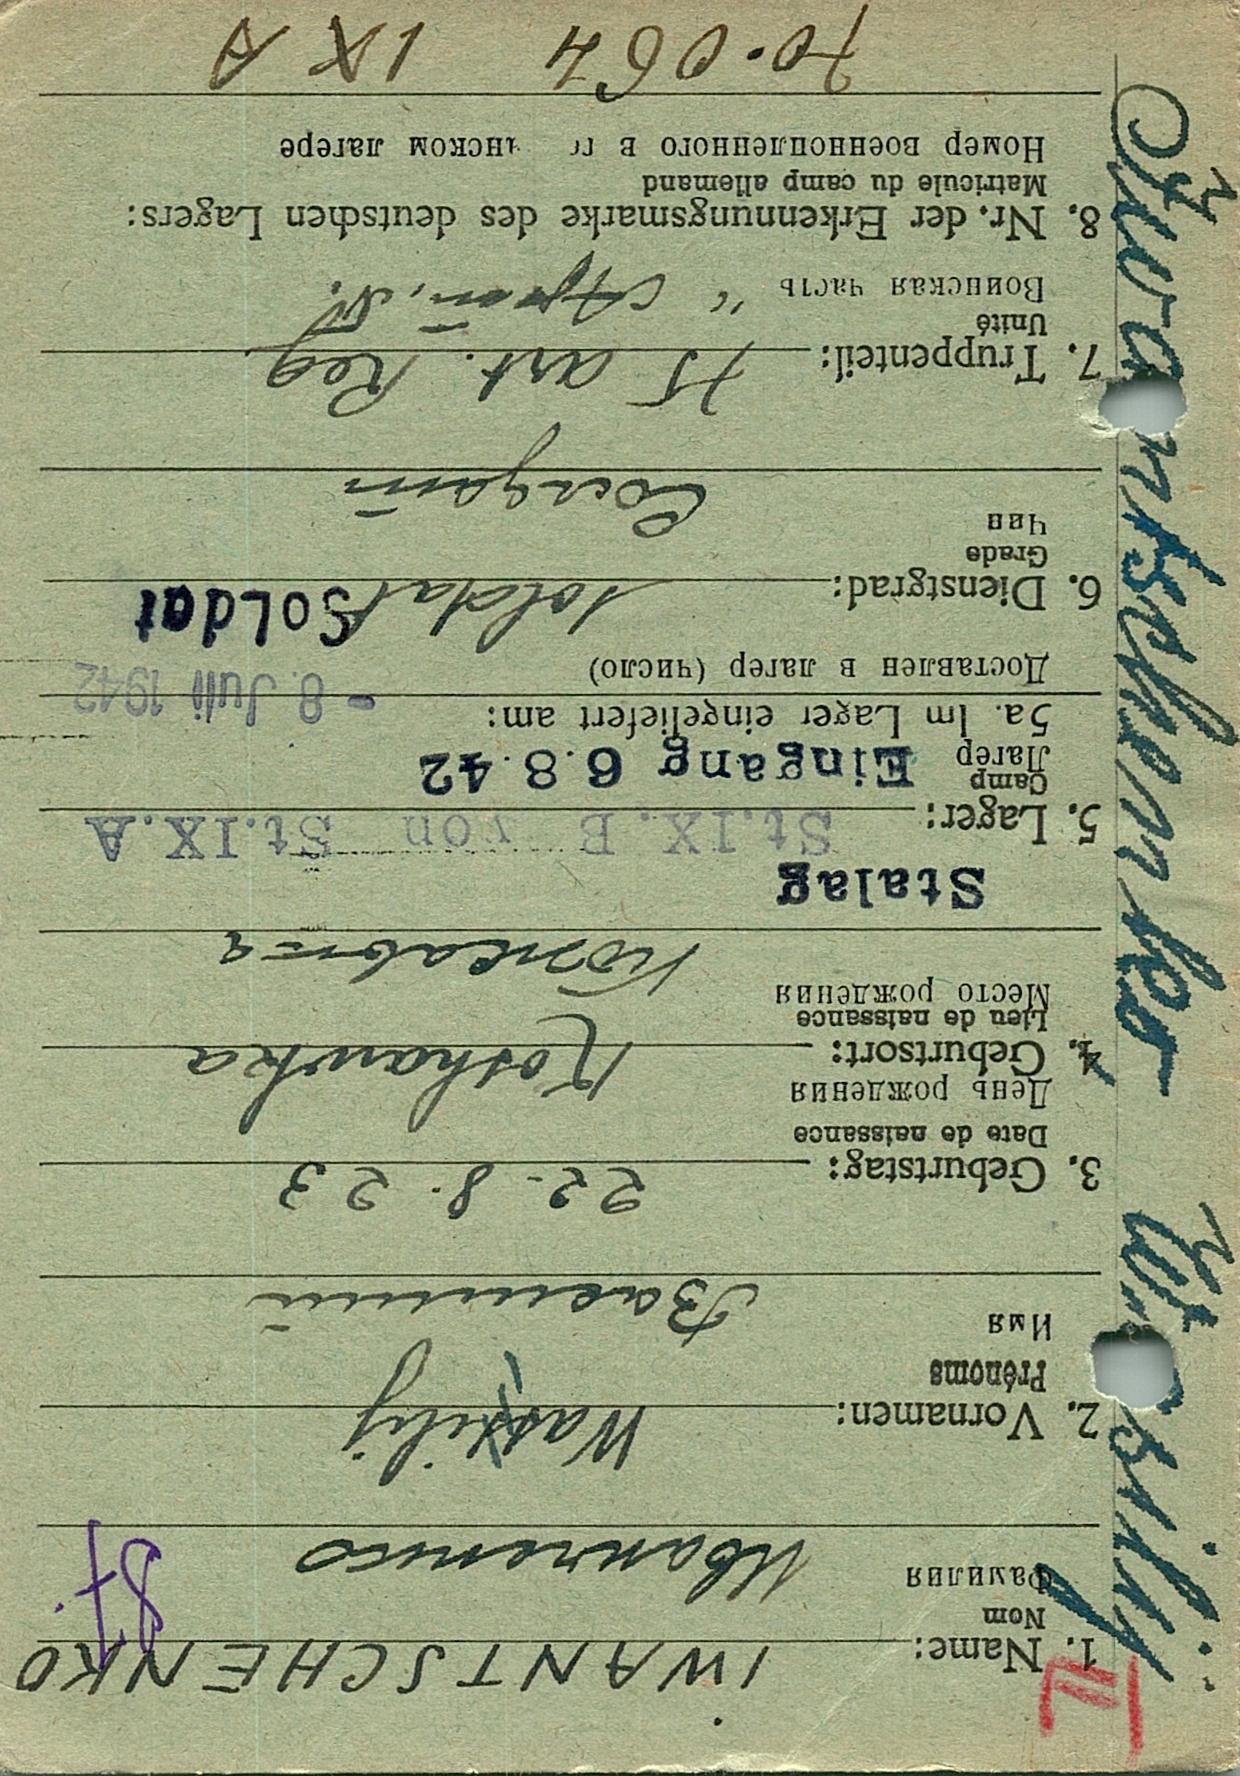 1. Name: IWANTSCHENKO
Nom
Фамилия Иванченко
87.
2. Vornamen: Wassilij
Prénoms
Имя Василий
3. Geburtstag: 22. 8. 23
Date de naissance
День рождения
4. Geburtsort: Koshawka
Lieu de naissance
Место рождения
Stalag
5. Lager: St.IX.B von St.IX.A
Camp
Лагер Eingang 6.8.42
5a. Im Lager eingeliefert am: - 8. Juli 1942
Доставлен в лагер (число)
6. Dienstgrad: soldat Soldat
Grade
Чин Солдат
7. Truppenteil: 75 art. Reg
Unité
Воинская часть "
8. Nr. der Erkennungsmarke des deutschen Lagers:
Matricule du camp allemand
Номер военнопленного в нском лагере
70.064 IX A
Iwantschenko Wassilij